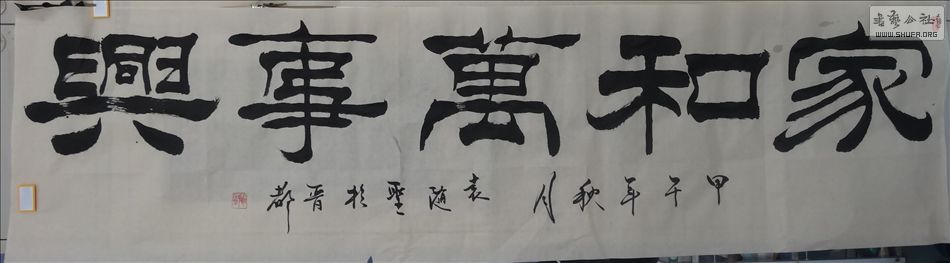 家和萬事興
甲午年秋月袁随聖於晋都
書藝公社
WWW.SHUFA.ORG